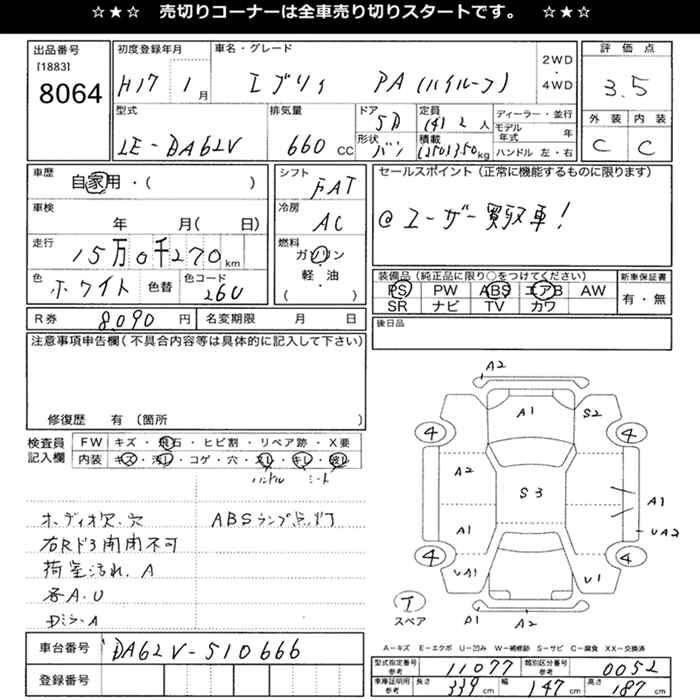 ☆★☆ 売切りコーナーは全車売り切りスタートです。 ☆★☆
出品番号
[1883]
8064
初度登録年月
H17 1月
車名・グレード
エブリィ PA(ハイルーフ)
2WD
・
4WD
評価点
3.5
外装 内装
C C
型式
LE-DA62V
排気量
660 cc
ドア
5D
形状
バン
定員
(4) 2人
積載
(250)350kg
ディーラー・並行
モデル年式 年
ハンドル 左・右
車歴
自家用・( )
車検
年 月( 日)
走行
15万0千270km
色
ホワイト
色替
色コード
26U
シフト
FAT
冷房
AC
燃料
ガソリン
軽・油
( )
セールスポイント(正常に機能するものに限ります)
@ユーザー買取車!
装備品(純正品に限り○をつけてください)
PS PW ABS エアB AW
SR ナビ TV カワ
新車保証書
有・無
R券 8,090円
名変期限 月 日
後日品
注意事項申告欄(不具合内容等は具体的に記入して下さい)
修復歴 有(箇所 )
検査員
記入欄
FW キズ・飛石・ヒビ割・リペア跡・X要
内装 キズ・汚レ・コゲ・穴・スレ・キレ・破レ
ハンドル シート
オーディオ欠.穴 ABSランプ点灯
右Rド3開閉不可
荷室汚れ.A
各A.U
A2
A1
S2
4
4
A2
S3
A1
UA2
A1
4
4
UA1
U1
T
スペア
A1
A2
A-キズ E-エクボ U-凹み W-補修跡 S-サビ C-腐食 XX-交換済
車台番号 DA62V-510666
登録番号
型式指定番号
参考
11077
類別区分番号
参考
0052
車庫証明用
参考
長さ 339cm
幅 147cm
高さ 187cm